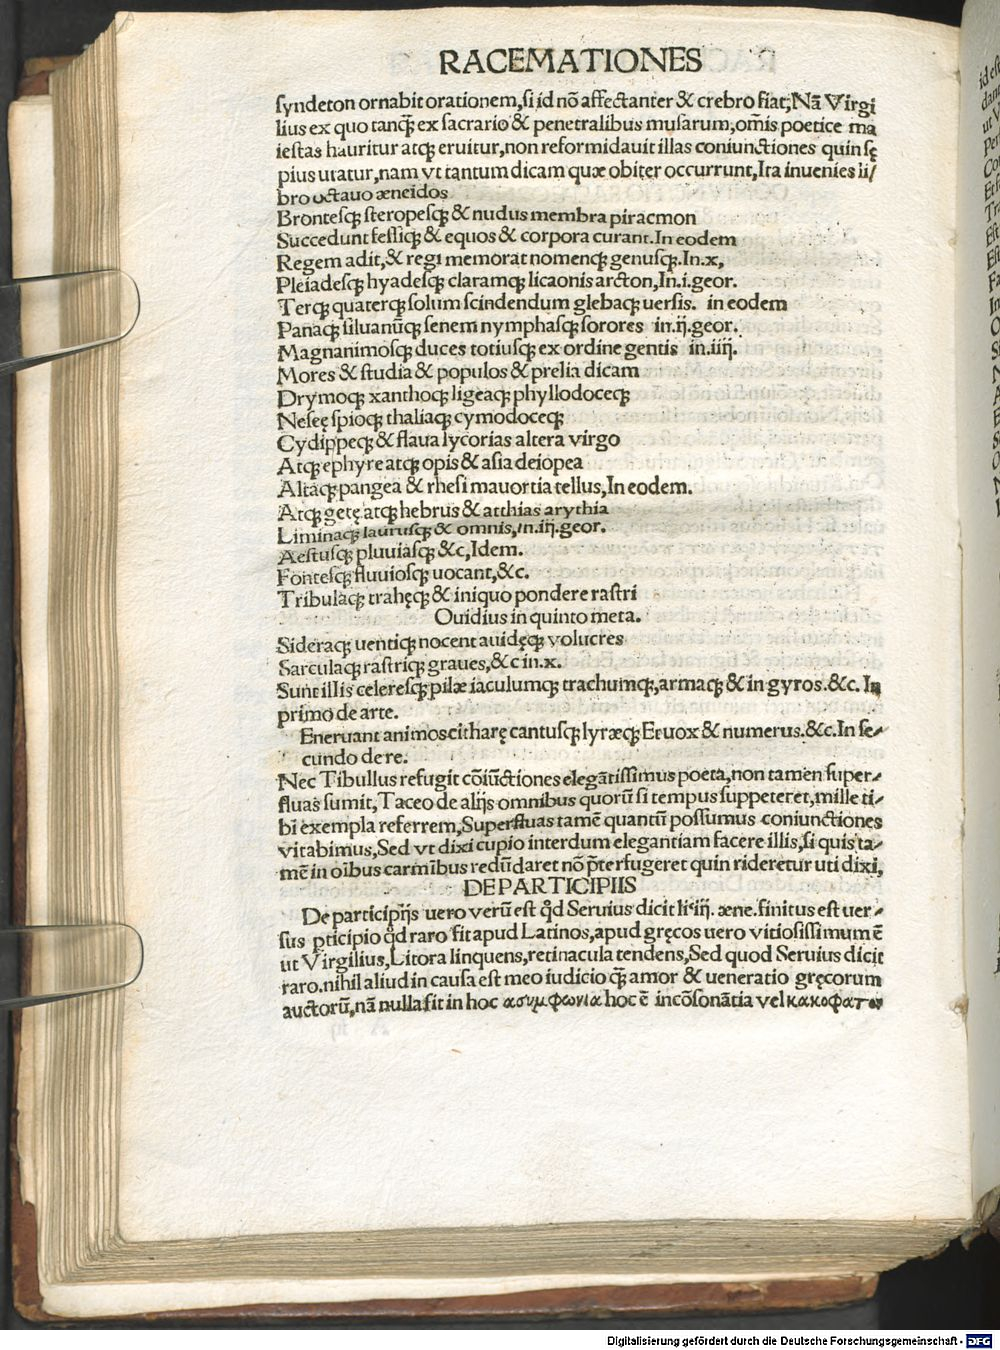 RACEMATIONES
syndeton ornabit orationem, si id nõ affectanter & crebro fiat; Nã Virgi
lius ex quo tanꝗ̃ ex sacrario & penetralibus musarum, om̃is poetice ma
iestas hauritur atqꝫ eruitur, non reformidauit illas coniunctiones quin sę
pius utatur, nam vt tantum dicam quæ obiter occurrunt, Ita inuenies li/
bro octauo æneidos
Brontesqꝫ steropesqꝫ & nudus membra piracmon
Succedunt fessiqꝫ & equos & corpora curant. In eodem
Regem adit, & regi memorat nomenqꝫ genusqꝫ. In. x,
Pleiadesqꝫ hyadesqꝫ claramqꝫ licaonis arcton, In. i. geor.
Terqꝫ quaterqꝫ solum scindendum glebaqꝫ uersis. in eodem
Panaqꝫ siluanũqꝫ senem nymphasqꝫ sorores in. ij. geor.
Magnanimosqꝫ duces totiusqꝫ ex ordine gentis in. iiij.
Mores & studia & populos & prelia dicam
Drymoqꝫ xanthoqꝫ ligeaqꝫ phyllodoceqꝫ
Neseę spioqꝫ thaliaqꝫ cymodoceqꝫ
Cydippeqꝫ & flaua lycorias altera virgo
Atqꝫ ephyre atqꝫ opis & asia deiopea
Altaqꝫ pangea & rhesi mauortia tellus, In eodem.
Atqꝫ getę atqꝫ hebrus & atthias arythia
Liminaqꝫ laurusqꝫ & omnis, in. iij. geor.
Aestusqꝫ pluuiasqꝫ &c, Idem.
Fontesqꝫ fluuiosqꝫ uocant, &c.
Tribulaqꝫ trahęqꝫ & iniquo pondere rastri
Ouidius in quinto meta.
Sideraqꝫ uentiqꝫ nocent auidęqꝫ volucres
Sarculaqꝫ rastriqꝫ graues, &c in. x.
Sunt illis celeresqꝫ pilæ iaculumqꝫ trachumqꝫ, armaqꝫ & in gyros. &c. In
primo de arte.
Eneruant animos citharę cantusqꝫ lyræqꝫ Et uox & numerus. &c. In se-
cundo de re.
Nec Tibullus refugit cõiũctiones elegãtissimus poeta, non tamen super-
fluas sumit, Taceo de alijs omnibus quorũ si tempus suppeteret, mille ti-
bi exempla referrem, Superfluas tamẽ quantũ possumus coniunctiones
vitabimus, Sed vt dixi cupio interdum elegantiam facere illis, si quis ta-
mẽ in oĩbus carmĩbus redũdaret nõ p̃terfugeret quin rideretur uti dixi,
DE PARTICIPIIS
De participijs uero verũ est qd̃ Seruius dicit li. iij. æne. finitus est uer-
sus ꝑticipio qd̃ raro fit apud Latinos, apud gręcos uero vitiosissimum ẽ
ut Virgilius, Litora linquens, retinacula tendens, Sed quod Seruius dicit
raro. nihil aliud in causa est meo iudicio ꝗ̃ amor & ueneratio gręcorum
auctorũ, nã nulla fit in hoc ασυμφωνια hoc ẽ incõsonãtia vel κακοφατον
Digitalisierung gefördert durch die Deutsche Forschungsgemeinschaft - DFG